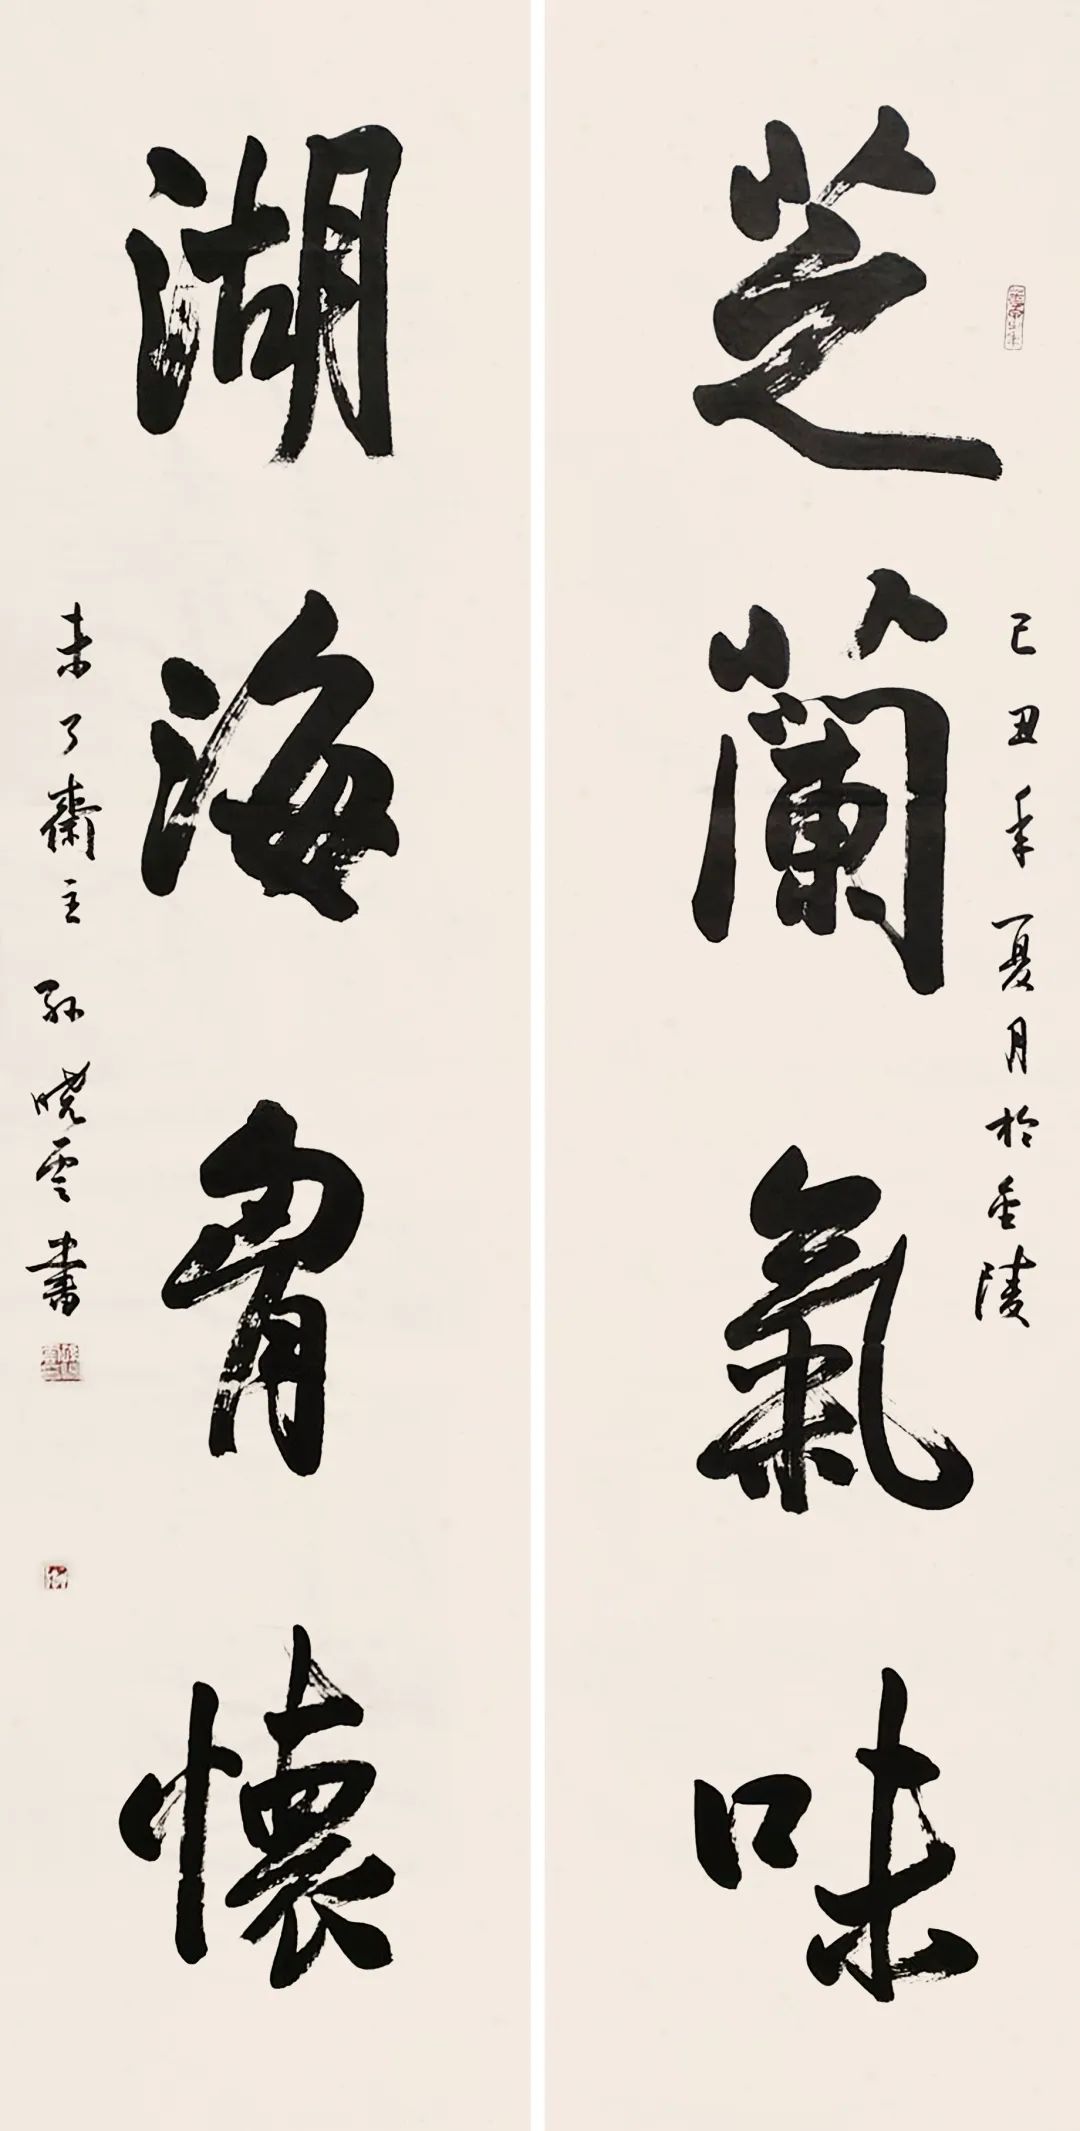 芝蘭氣味
己丑年夏月於金陵
湖海胷懷
未了齋主孙晓雲書